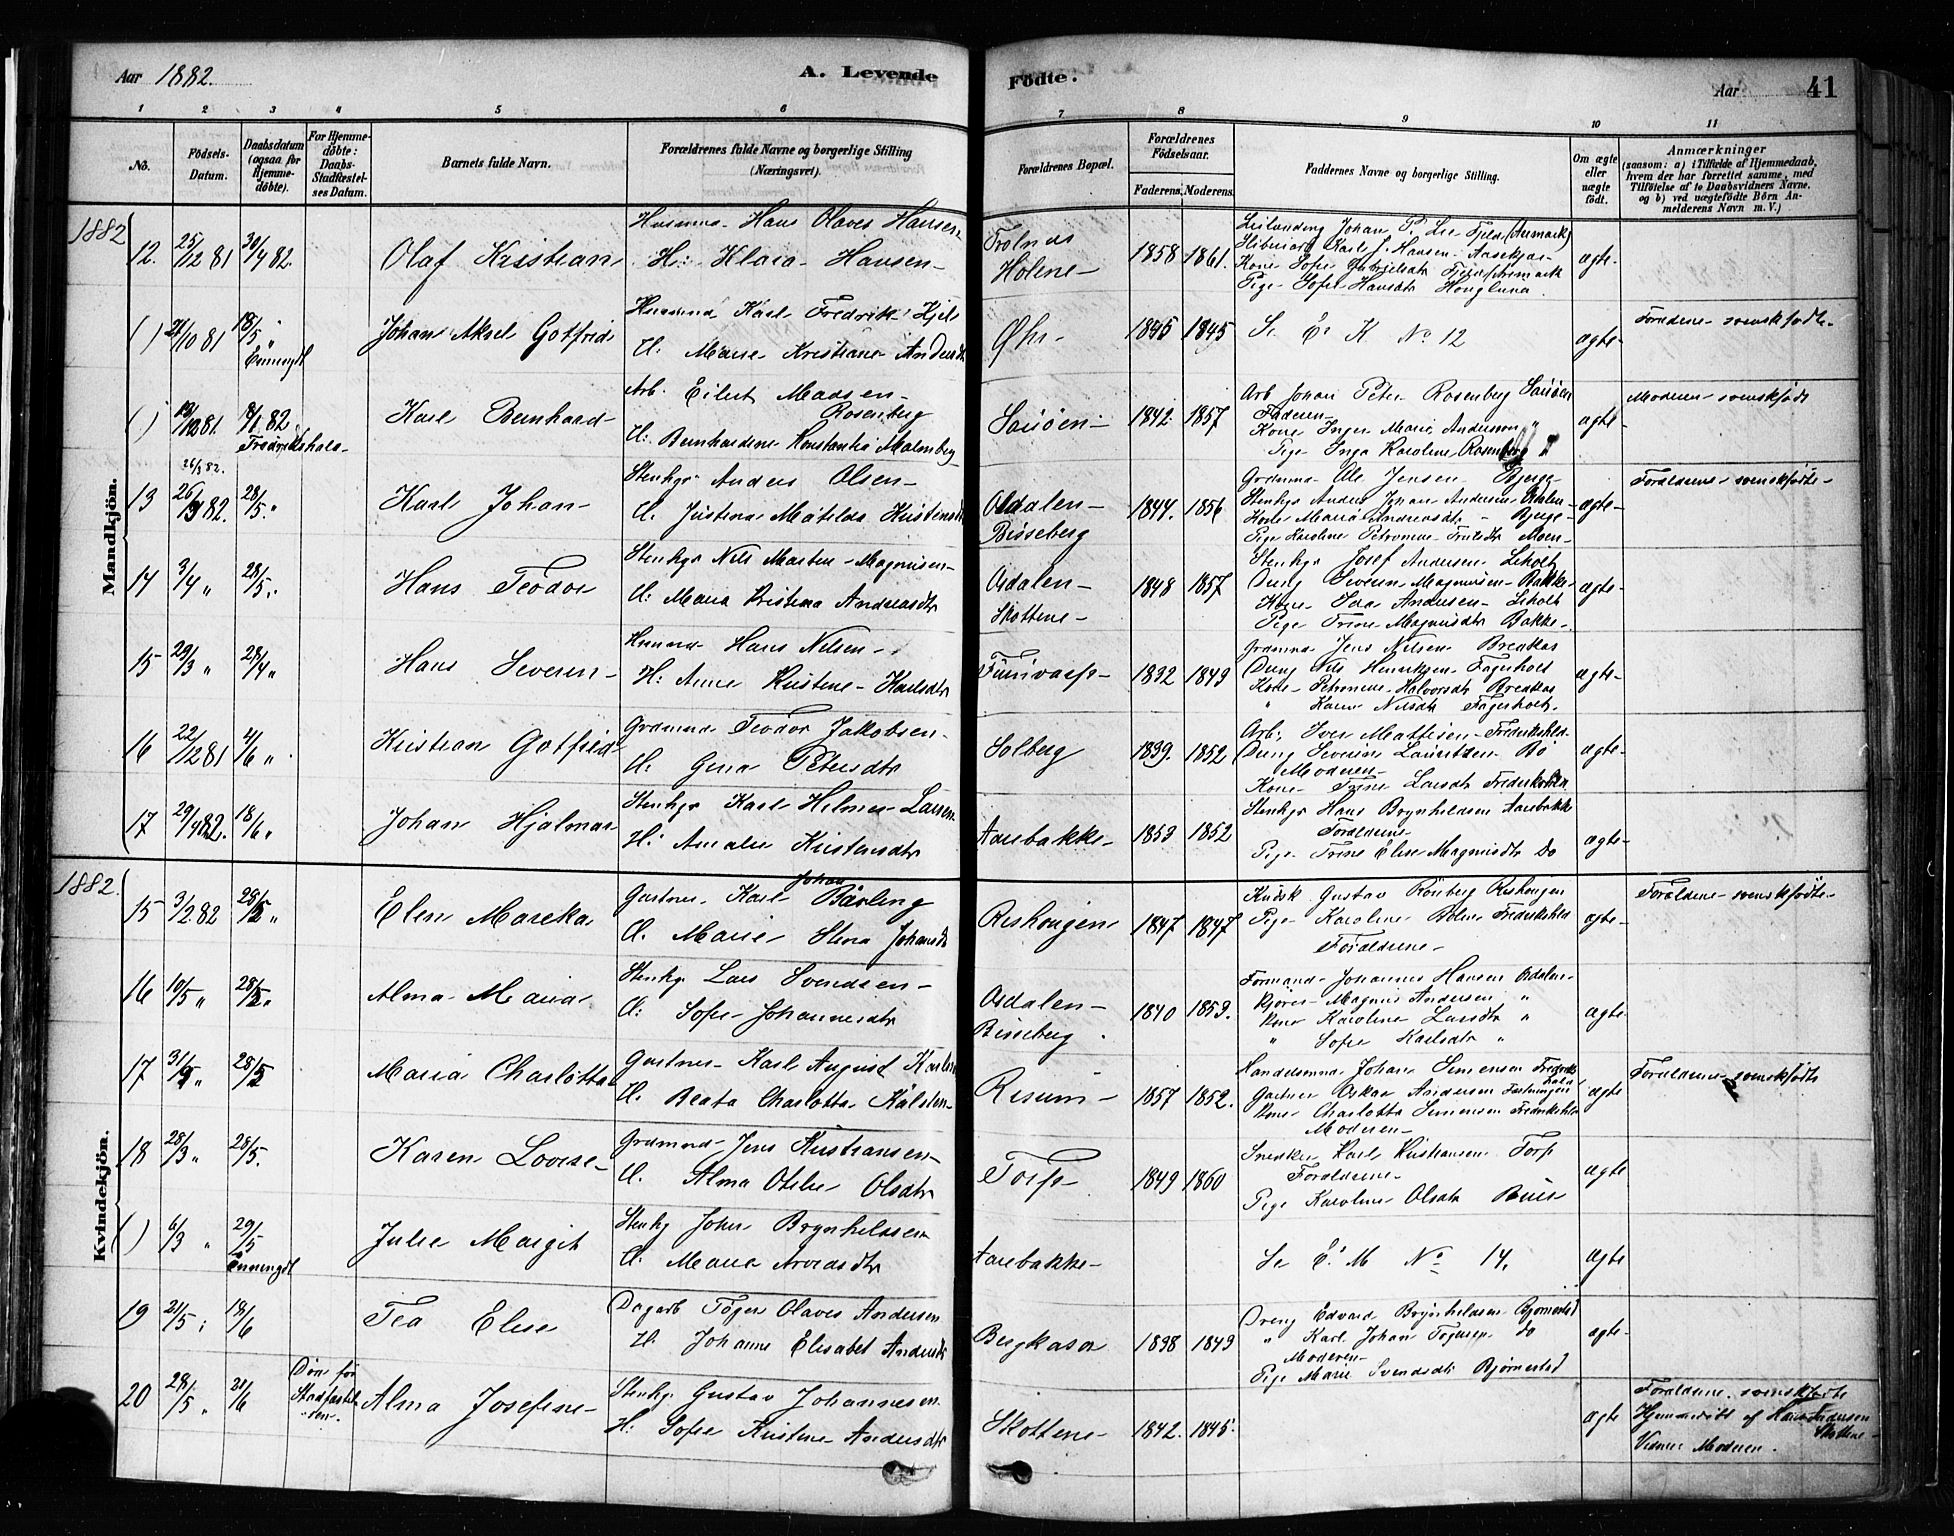 Aar 1882. A. Levende Födte. Aar 41
1 2 3 4 5 6 7 8 9 10 11
No. Födsels-Datum. Daabsdatum (ogsaa for Hjemmedøbte). For Hjemmedøbte: Daabs-Stadfæstelses Datum. Barnets fulde Navn. Forældrenes fulde Navne og borgerlige Stilling (Næringsvei). Forældrenes Bopæl. Forældrenes Födselsaar. Faderens. Moderens. Faddernes Navne og borgerlige Stilling. Om ægte eller uægte födt. Anmærkninger (saasom: a) i Tilfælde af Hjemmedaab, hvem der har forrettet samme, med Tilföielse af to Daabsvidners Navne, og b) ved uægtefödte Börn Anmelderens Navn m. V.)
Mandkjön.
1882
12. 25/12 81 30/4 82. Olaf Kristian
Husmnd. Hans Olaves Hansen
H: Klara Hansen
Holene 1858 1861.
Pige Sofie Hansdtr
ægte
( ) 10 81 18/5 " Enningdl Johan Aksel Gotfrid
Karl Fredrik
H: Marie Kristiane Andersdtr
1845 1845 Se K No 12 ægte
Forældrene svenskfødte
( ) 12 81. 82 Fredrikshald Karl Bernhard
Arb. Eilert Madsen Rosenberg
H: Bernhardine Konstantia Malmberg
Sauøen 1842. 1857
Arb Johan Peter Rosenberg Sauøen
Faderen
Kone Inger Marie Andersen "
Pige Inga Karoline Rosenberg "
ægte
Moderen svenskfødt
26/3 82.
13 26/3 82. 28/5. " Karl Johan
Stenhgr Anders Olsen
H. Justina Matilda Kristensdtr
Asdalen
Bisseberg 1844. 1856
Grdmnd. Ole Jensen Bjerge
Stenhgr Anders Johan Andersen Asdalen
Kone Maria Andreasdtr Bjerge
Pige Karoline Petronine Moen
ægte
Forældrene svenskfødte
14 3/4 " 28/5. Hans Teodor
Stenhgr Nils Marten Magnusen
H: Maria Kristina Andreasdtr
Asdalen
Skottene 1848 1857
Stenhgr Josef Andersen Liholt
Dreng Severin Magnusen Bakke
Kone Ida Andersen Liholt
Pige Trine Magnusdtr Bakke
ægte
15 29/3 " 28/4 " Hans Severin
Husmnd Hans Nilsen
H: Anne Kristine Karlsdtr
1832 1849
Grdmnd Jens Nilsen Bredkas
Dreng Nils Henriksen Fagerholt
Kone Petronine Halvorsdtr Bredkas
" Karen Nilsdtr Fagerholt
ægte
16 22/12 81 4/6 " Kristian Gotfried
Grdmnd Teodor Jakobsen
H: Gina Petersdtr
Solberg 1839. 1852
Arb. Iver Mattisen Frederikshld
Dreng Severin Lauritsen Bø
Moderen
Kone Trine Larsdtr Frederikshld
ægte
17 29/4 82. 18/6 " Johan Hjalmar
Stenhgr Karl Hilmer Larsen
H: Amalie Kristensdtr
Aarebakke 1853 1852
Stenhgr Hans Brynhildsen Aarebakke
Forældrene
Pige Trine Elise Magnusdtr Do
ægte
Kvindekjön.
1882.
15 3/2 82 28/5 " Elen Mareka
Gartner Karl Johan Bärling
H. Marie Stina Johansdt
Rishaugen 1847 1847
Kudsk Gustav Rönberg Rishaugen
Pige Karoline Frederikshld
Forældrene
ægte
Forældrene svenskfødte
16 10/5 " 28/5 " Alma Maria
Stenhgr Lars Svendsen
H: Sofie Johannesdtr
Asdalen
Bisseberg 1840 1853.
Formand Johannes Hansen Asdalen
Kjører Magnus Andersen "
Kone Karoline Larsdtr "
" Sofie Karlsdtr "
ægte
17 28/5 Maria Charlotta
Gartner Karl August Karlsen
H. Beata Charlotta
Risum 1857 1852.
Handelsmnd Johan Simensen Fredrikshald
Gartner Oskar Andersen Fæstningen
Kone Charlotta Simensen Frederikshld
Moderen
ægte
Forældrene svenskfødte
18 28/3 " 28/5. Karen Lovise
Grdmnd Jens Kristiansen
H. Alma Otilie Olsdtr
Torp 1849 1860
Snedker Karl Kristiansen Torp
Forældrene
Pige Karoline Olsdtr
ægte
( ) 6/3 " 29/5 Enningdl Julie Margit
Stenhgr Johan Brynhildsen
H. Marie Arvesdtr
Aarebakke Se M No 14. ægte
19 21/5 18/6 Tea Elise
Dagarb Tøger Olaves Andersen
H. Johanne Elisabet Andersdtr
Bergkasa 1838 1849
Dreng Edvard Brynhildsen Bjørnested
" Karl Johan Tøgersen Do
Moderen
Pige Marie Svendsdtr Bjørnested
ægte
20 28/5 " 21/6 Død før Stadfæstelsen. Alma Josefine
Stenhgr Gustav Johannesen
H: Sofie Kristine Andersdtr
Skottene 1842. 1845.
ægte
Forældrene svenskfødte
Hjemmedøbt af Andersen
Skottene
Vidner Moderen.